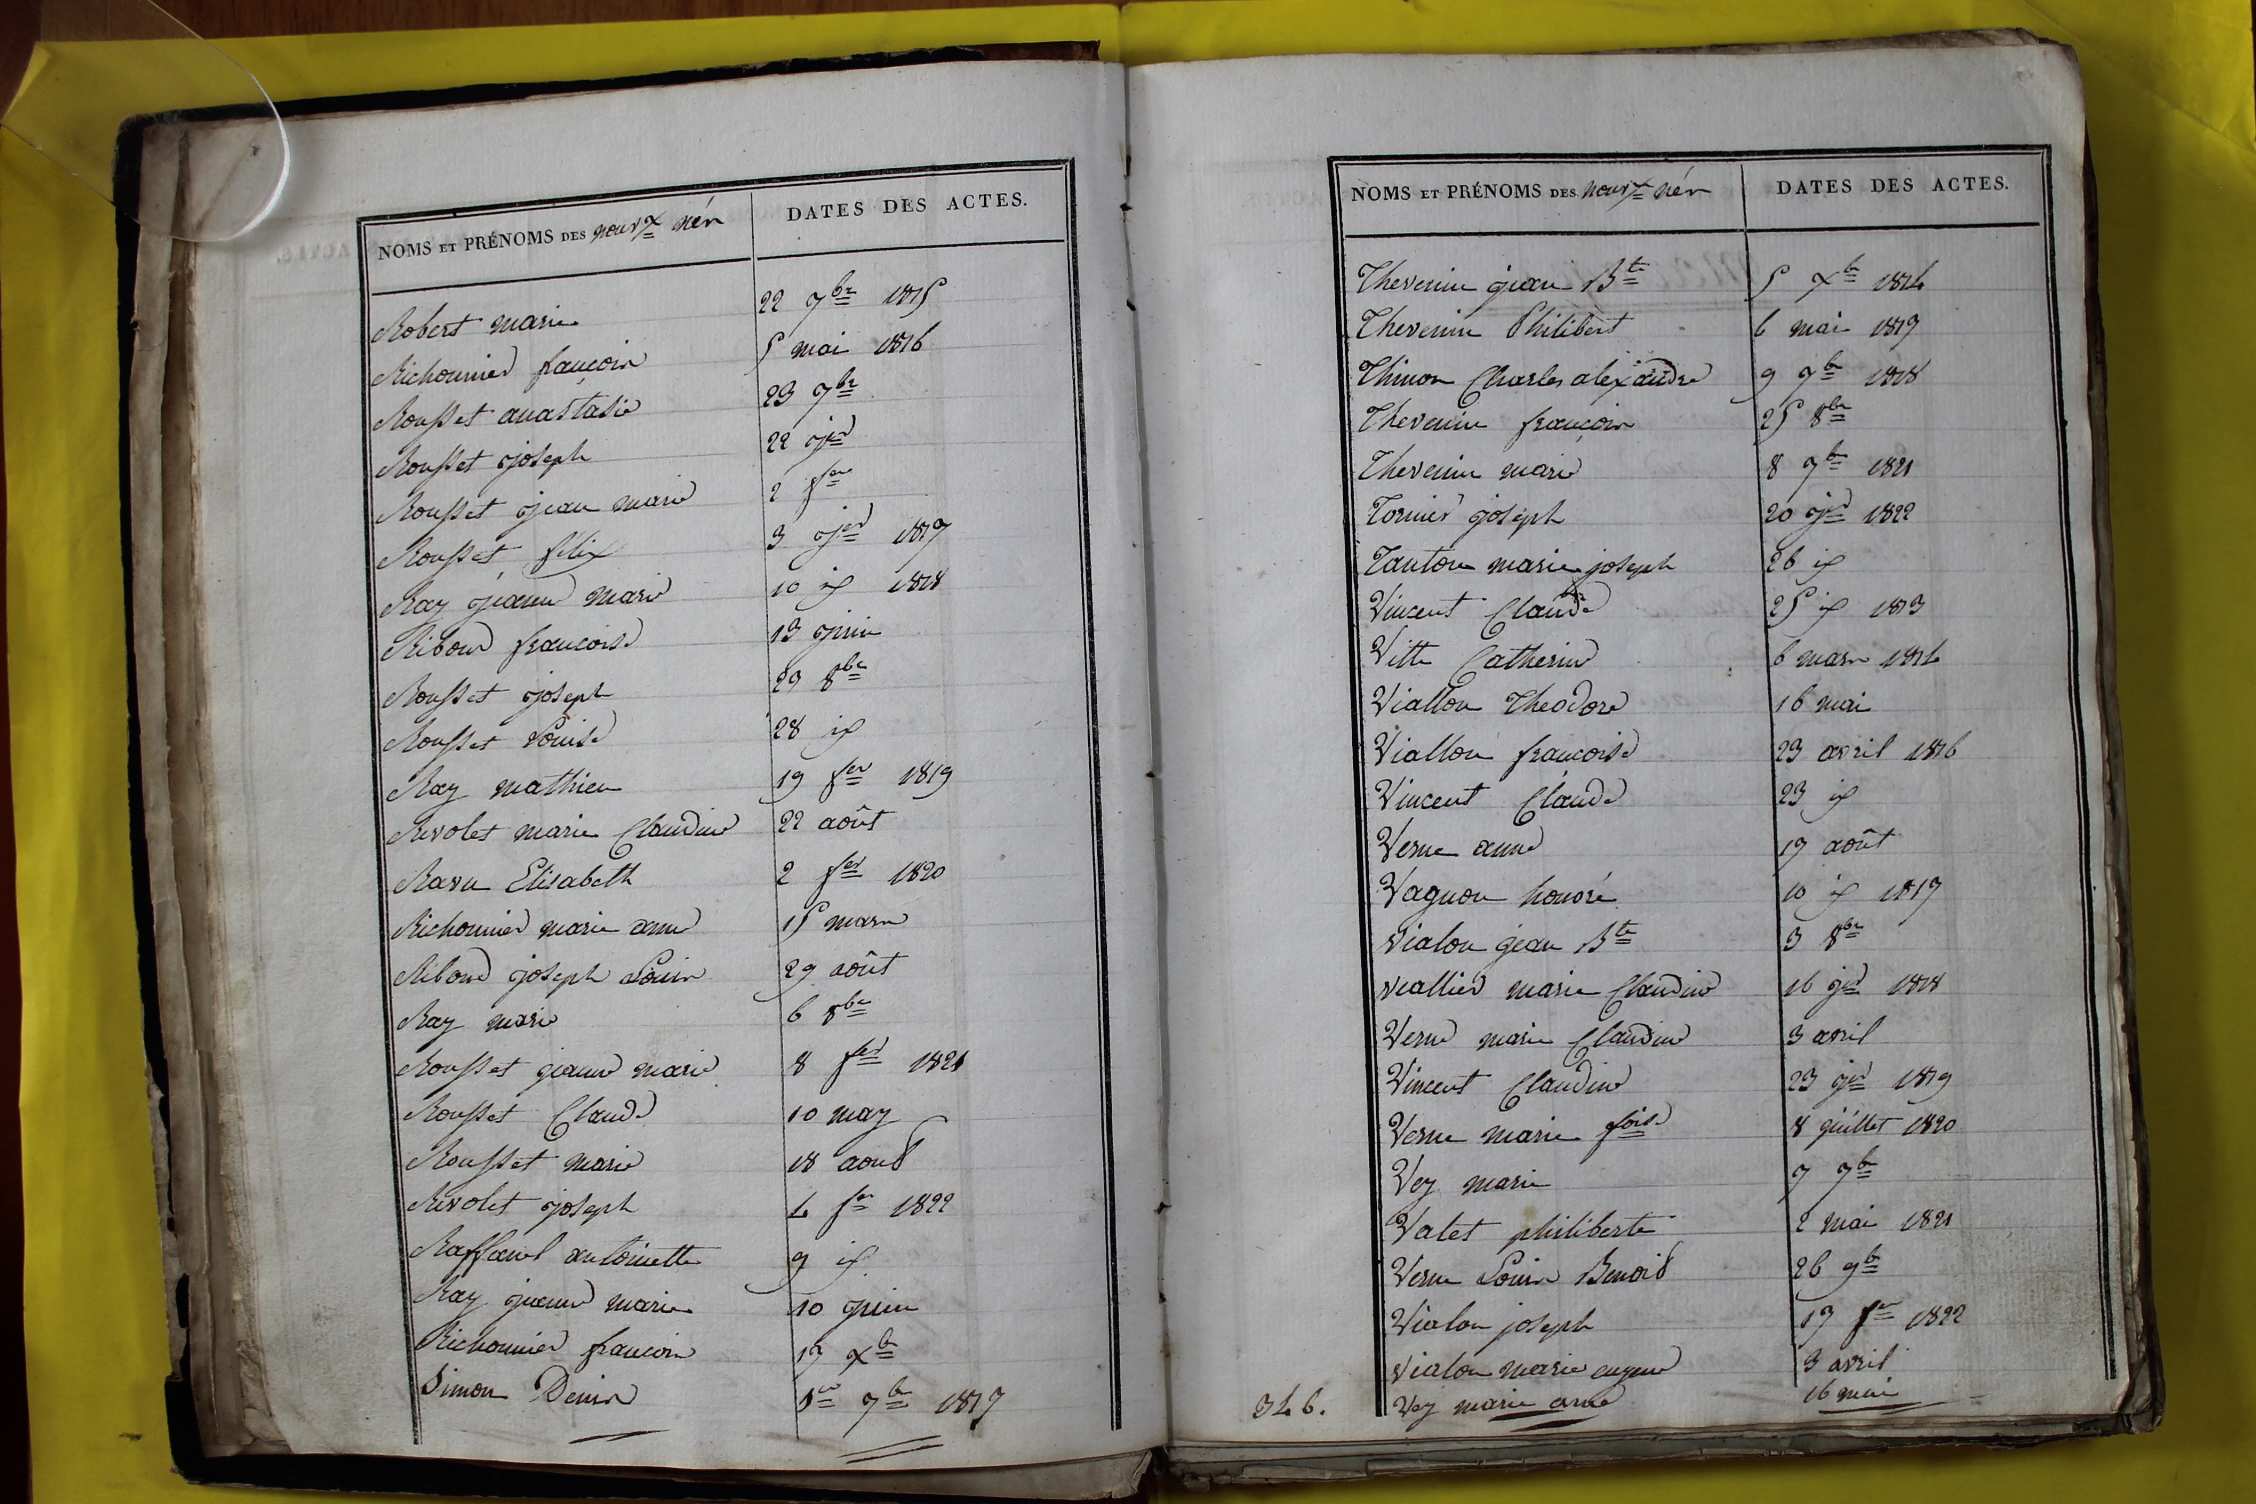 NOMS ET PRÉNOMS DES nouvx nés DATES DES ACTES.
Robert marie 22 7bre 1815
Richonnier françois 5 mai 1816
Rousset anastasie 23 7bre
Rousset joseph 22 jer
Rousset jean marie 2 fer
Rousset félix 3 jer 1817
Ray jeanne marie 10 id 1818
Riboud françoise 13 juin
Rousset joseph 29 8bre
Rousset Louise 28 id
Ray mathieu 19 fer 1819
Rivolet marie Claudine 22 août
Ravu Elisabeth 2 fer 1820
Richonnier marie anne 15 mars
Riboud joseph Louis 29 août
Ray marie 6 8bre
Rousset jeanne marie 8 fer 1821
Rousset Claude 10 may
Rousset marie 18 aout
Rivolet joseph 4 fer 1822
Raffanel antoinette 9 id
Ray jeanne marie 10 juin
Richonnier françois 17 xb
Simon Denis 1er 7bre 1817
NOMS ET PRÉNOMS DES nouvx nés DATES DES ACTES.
Thevenin jean Bte 5 xb 1814
Thevenin Philibert 6 mai 1817
Thinon Charles alexandre 9 7b 1818
Thevenin françois 25 8bre
Thevenin marie 8 7bre 1821
Tornier joseph 20 jer 1822
Tanton marie joseph 26 id
Vincent Claude 25 id 1813
Vitte Catherine 6 mars 1814
Viallon Theodore 16 mai
Viallon françoise 23 avril 1816
Vincent Claude 23 id
Verne anne 17 août
Vagnon honoré 10 id 1817
Vialon jean Bte 3 8bre
Viallier marie Claudine 16 jer 1818
Verne marie Claudine 3 avril
Vincent Claudine 23 jer 1819
Verne marie foise 8 juillet 1820
Vey marie 7 7b
Valet philiberte 2 mai 1821
Verne Louis Benoit 26 9b
Vialon joseph 17 fer 1822
Vialon marie eugene 3 avril
346. Vey marie anne 16 mai